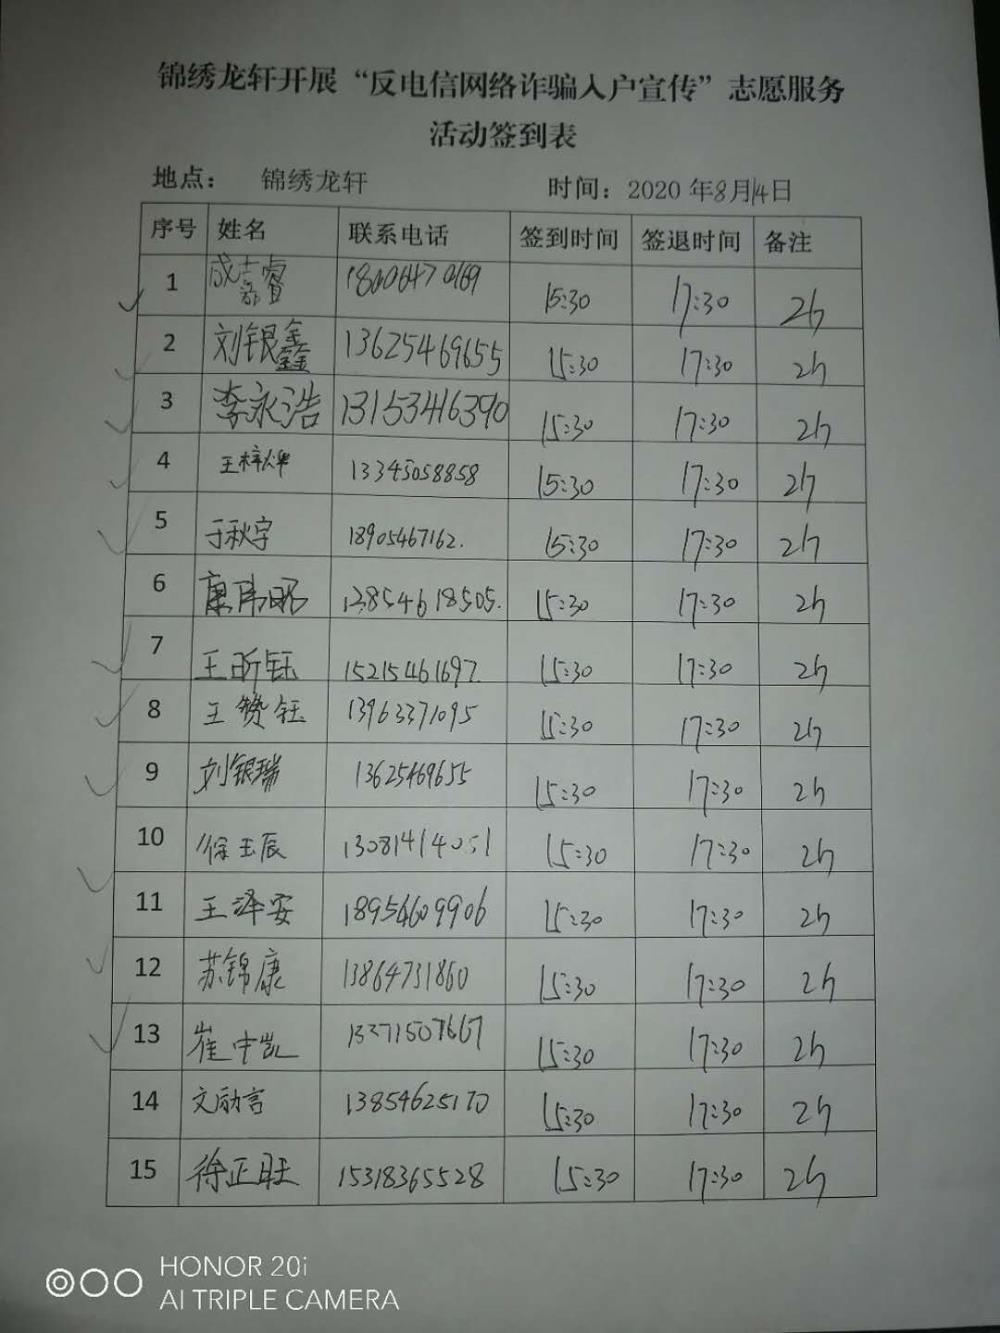 锦绣龙轩开展“反电信网络诈骗入户宣传”志愿服务
活动签到表
地点： 锦绣龙轩 时间：2020 年8月14日
序号 姓名 联系电话 签到时间 签退时间 备注
1 成嘉睿 18006470169 15:30 17:30 2h
2 刘银鑫 13625469655 15:30 17:30 2h
3 李永浩 13153416390 15:30 17:30 2h
4 王梓烨 13345058858 15:30 17:30 2h
5 于秋宇 18905467162. 15:30 17:30 2h
6 13854618505. 15:30 17:30 2h
7 王昕钰 15215461697. 15:30 17:30 2h
8 王赞钰 13963371095 15:30 17:30 2h
9 刘银瑞 13625469655 15:30 17:30 2h
10 徐玉辰 13081414051 15:30 17:30 2h
11 王泽安 18954609906 15:30 17:30 2h
12 苏锦康 13864731860 15:30 17:30 2h
13 崔中凯 13371507667 15:30 17:30 2h
14 文励言 13854625170 15:30 17:30 2h
15 徐正旺 15318365528 15:30 17:30 2h
HONOR 20i
AI TRIPLE CAMERA